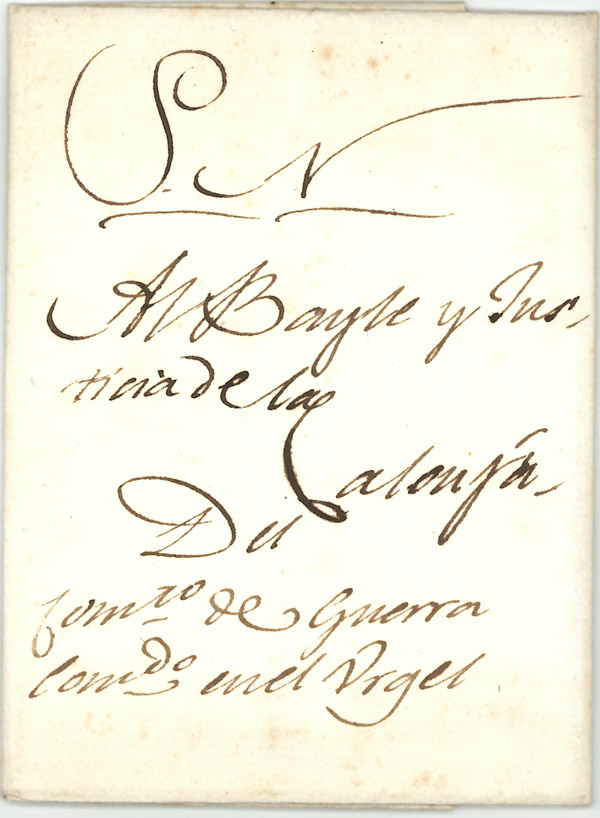 S. N
Al Bayle y Jus-
ticia de la
Calonja-
Del
Comto de Guerra
Comdo en el Vrgel